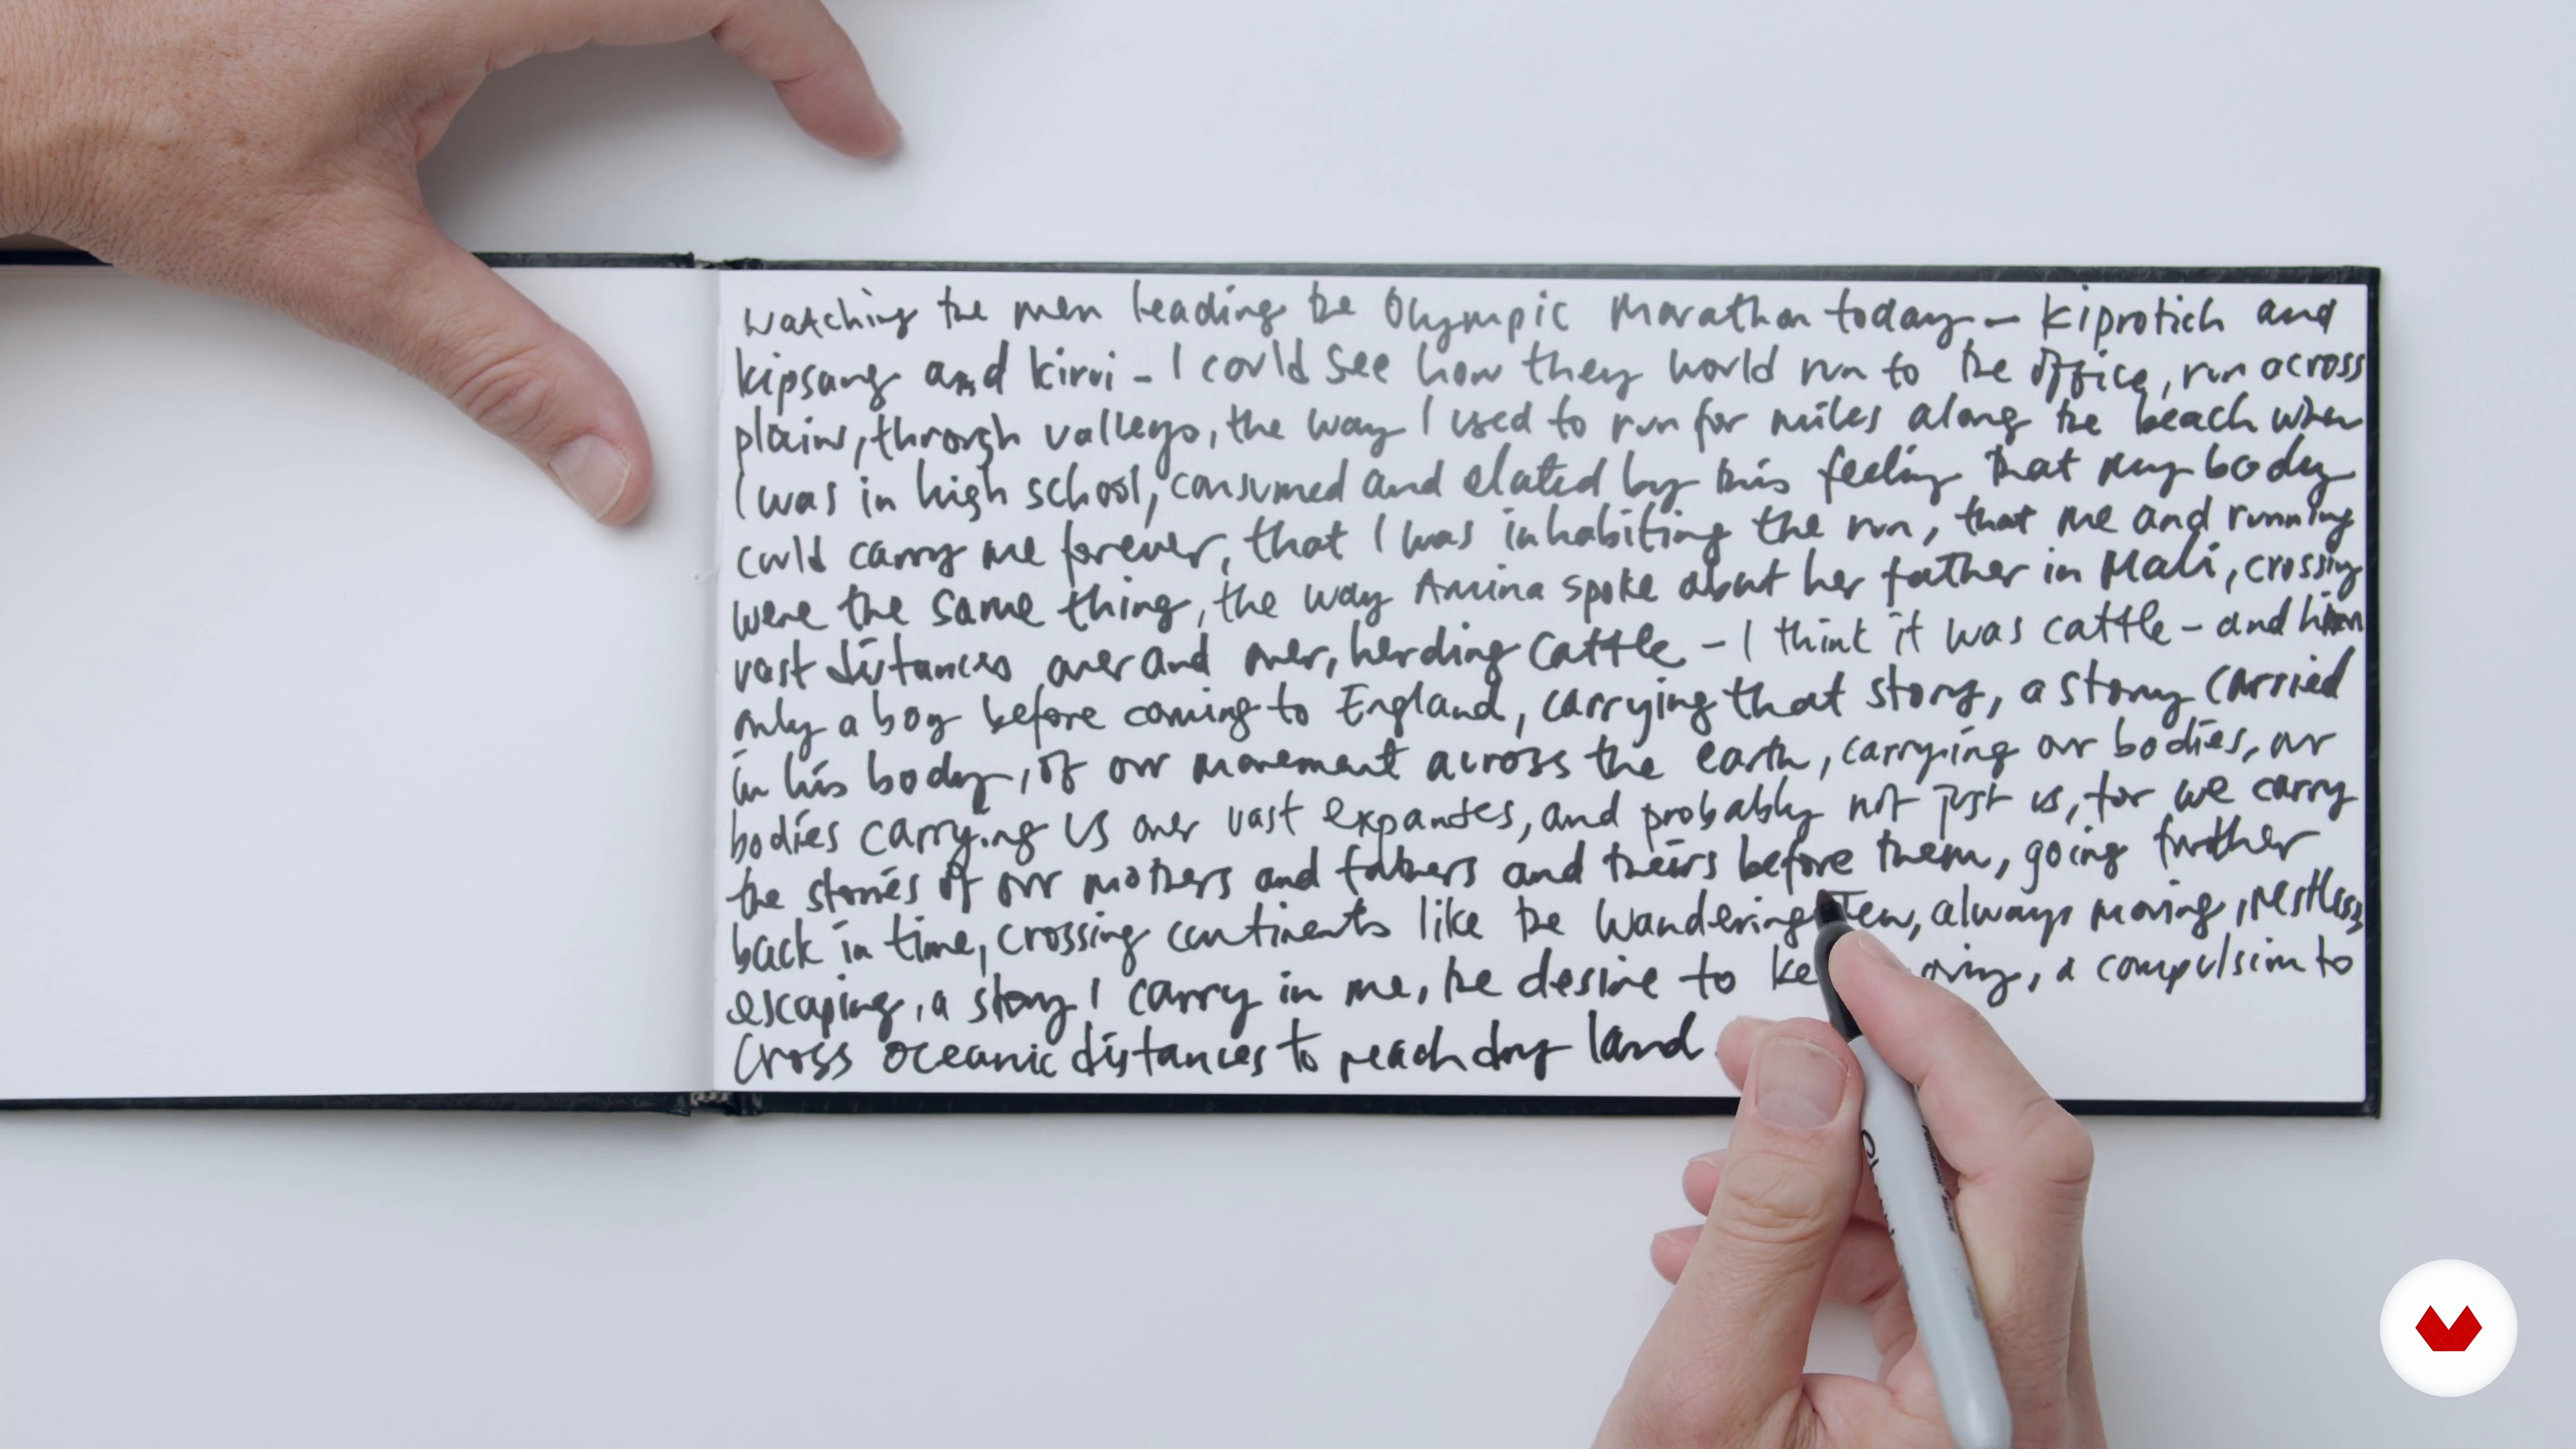 Watching the men leading the Olympic Marathon today – Kiprotich and
Kipsang and Kirui – I could see how they would run to the office, run across
plains, through valleys, the way I used to run for miles along the beach when
I was in high school, consumed and elated by this feeling that my body
could carry me forever, that I was inhabiting the run, that me and running
were the same thing, the way Amina spoke about her father in Mali, crossing
vast distances over and over, herding cattle – I think it was cattle – and him
only a boy before coming to England, carrying that story, a story carried
in his body, of our movement across the earth, carrying our bodies, our
bodies carrying us over vast expanses, and probably not just us, for we carry
the stories of our mothers and fathers and theirs before them, going further
back in time, crossing continents like the Wandering Jew, always moving, restless,
escaping, a story I carry in me, the desire to , a compulsion to
cross oceanic distances to reach dry land.